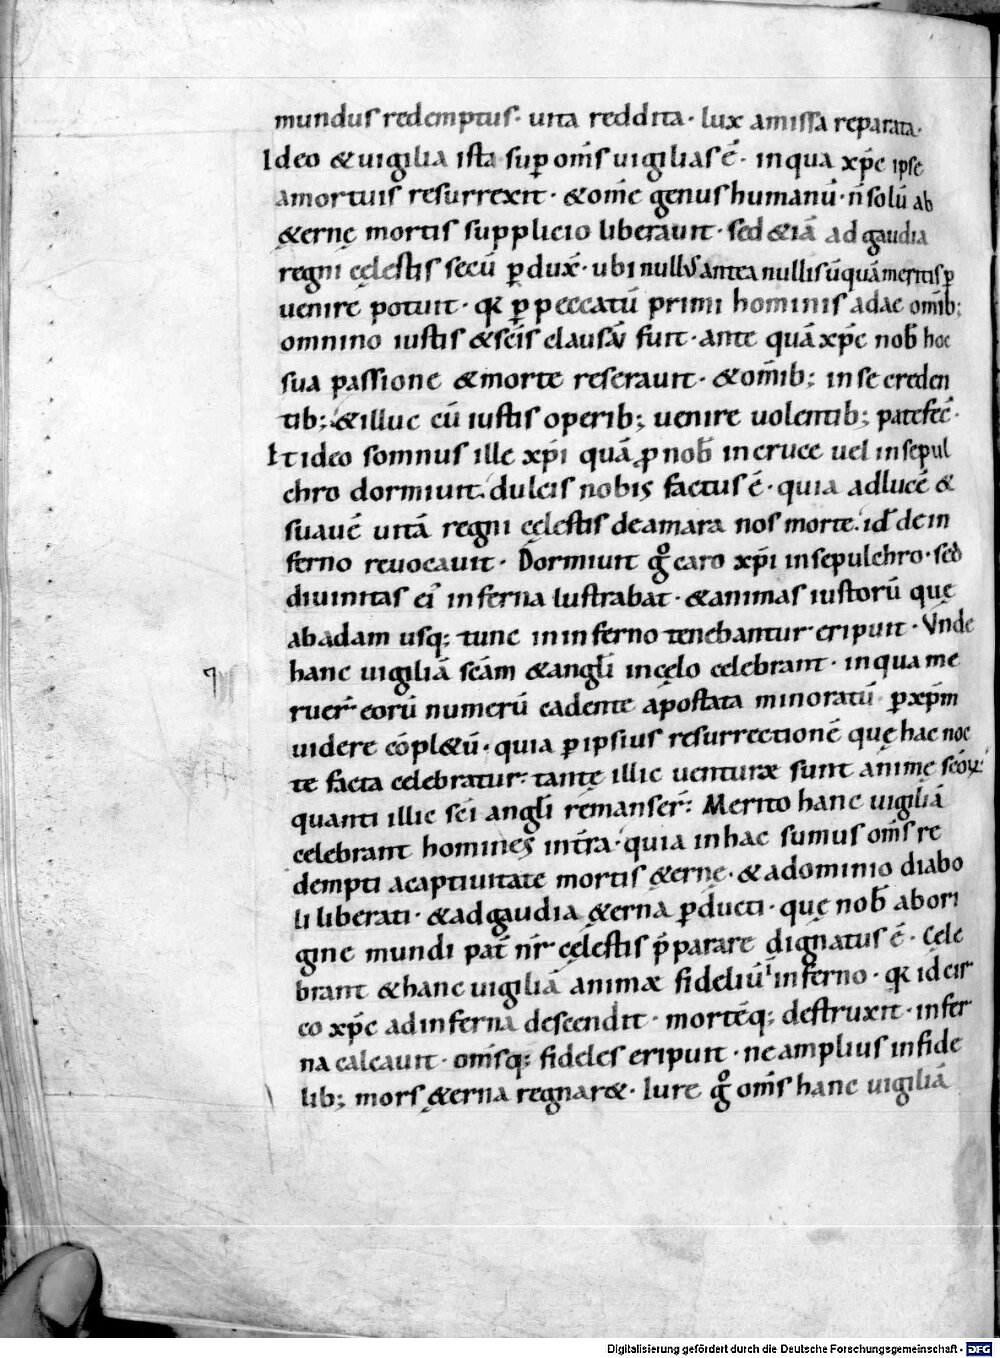 mundus redemptus· uita reddita· lux amissa reparata·
Ideo & uigilia ista sup̄ om̄s uigilias ē· in qua xp̄c ipse
a mortuis resurrexit· & om̄e genus humanū· n̄ solū ab
&ernę mortis supplicio liberauit· sed &iā ad gaudia
regni cęlestis secū ꝑdux̄· ubi nullus antea nullis ūquā meritis ꝑ
uenire potuit· qꝛ ꝑ peccatū primi hominis adae omib;
omnino iustis & sc̄is clausā fuit· ante quā xp̄c nob̄ hoc
sua passione & morte reserauit· & om̄ib; in se creden
tib; & illuc cū iustis operib; uenire uolentib; patefec̄·
Et ideo somnus ille xp̄i quā ꝓ nob̄ in cruce uel in sepul
chro dormiuit· dulcis nobis factus ē· quia ad lucē &
suauē uitā regni cęlestis de amara nos morte· id̄ de in
ferno reuocauit· Dormiuit gͦ caro xp̄i in sepulchro· sed
diuinitas ei᾽ inferna lustrabat· & animas iustorū quę
ab adam usq; tunc in inferno tenebantur eripuit· Vnde
hanc uigiliā sc̄am & angl̄i in cęlo celebrant· in qua me
ruer̄ eorū numerū cadente apostata minoratū ꝑ xp̄m
uidere cōpl&ū· quia ꝑ ipsius resurrectionē quę hac noc
te facta celebratur· tantę illic uenturæ sunt animę sc̄oꝝ·
quanti illic sc̄i angl̄i remanser̄· Merito hanc uigiliā
celebrant homines in t̄ra· quia in hac sumus om̄s re
dempti a captiuitate mortis &ernę· & a dominio diabo
li liberati· & ad gaudia &erna ꝑducti· quę nob̄ ab ori
gine mundi pat̄ nr̄ cęlestis p̄parare dignatus ē· Cele
brant & hanc uigiliā animæ fideliū in inferno· qꝛ idcir
co xp̄c ad inferna descendit· mortēq; destruxit· infer
na calcauit· om̄sq; fideles eripuit· ne amplius in fide
lib; mors &erna regnar&· Iure gͦ om̄s hanc uigiliā
Digitalisierung gefördert durch die Deutsche Forschungsgemeinschaft - DFG